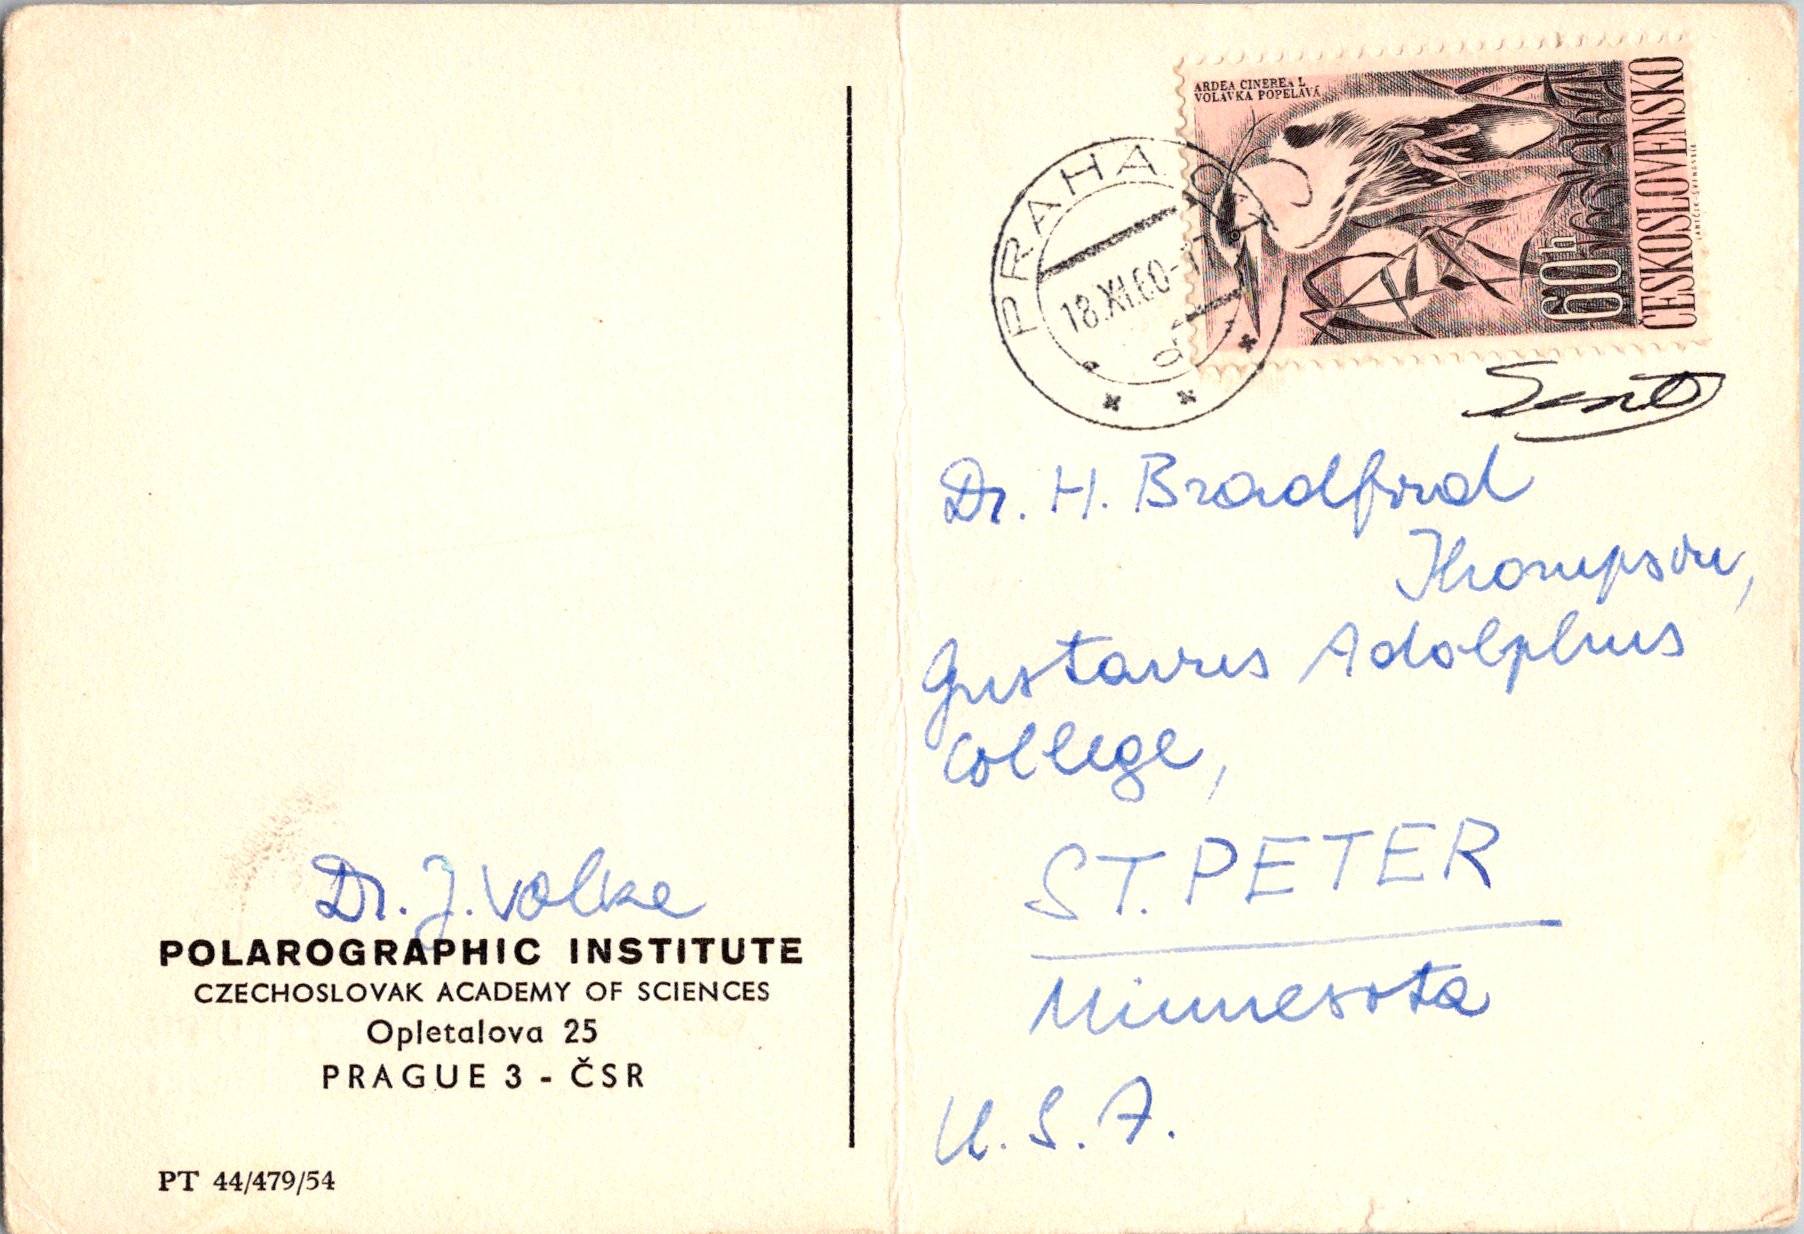 Dr. J. Volke
POLAROGRAPHIC INSTITUTE
CZECHOSLOVAK ACADEMY OF SCIENCES
Opletalova 25
PRAGUE 3 - ČSR
PT 44/479/54
ARDEA CINEREA L
VOLAVKA POPELAVÁ
60h
ČESKOSLOVENSKO
PRAHA 10
18.XI.60-17
Sent
Dr. H. Bradford
Thompson,
Gustavus Adolphus
College,
ST. PETER
Minnesota
U. S. A.